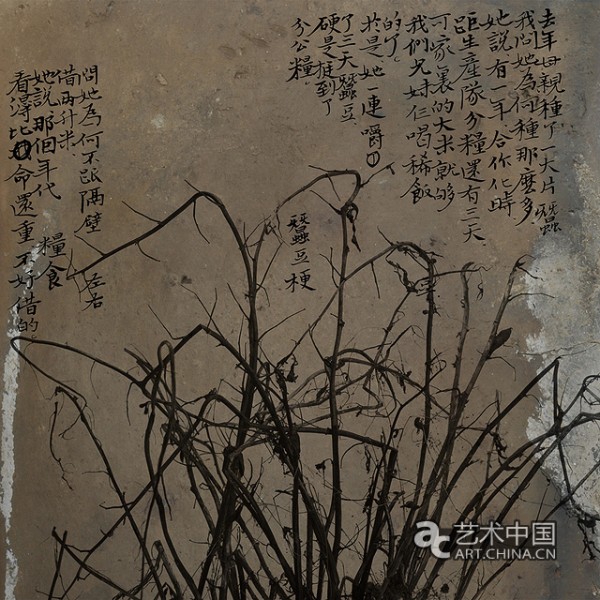 去年母親種了一大片蠶
我問她為何種那麼多
她說有一年合作化時
距生產隊分糧還有三天
可家裏的大米就夠
我們兄妹仨喝稀飯
的了。
於是她一連嚼
了三天蠶豆
硬是挺到了
分公糧。
蠶豆梗
問她為何不跟隔壁左右
借兩升米
她說那個年代糧食
看得比命還重不好借的。
艺术中国
ART.CHINA.CN